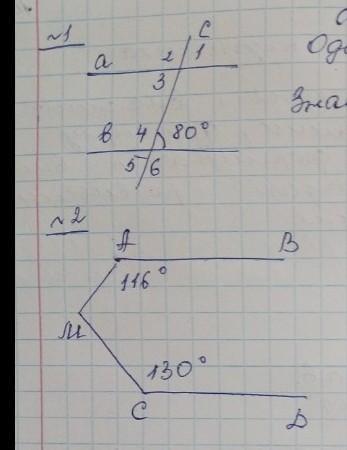 №1
c
a 2 1
3
b 4 80°
5 6
№2
A B
116°
M
130°
C D
Зна